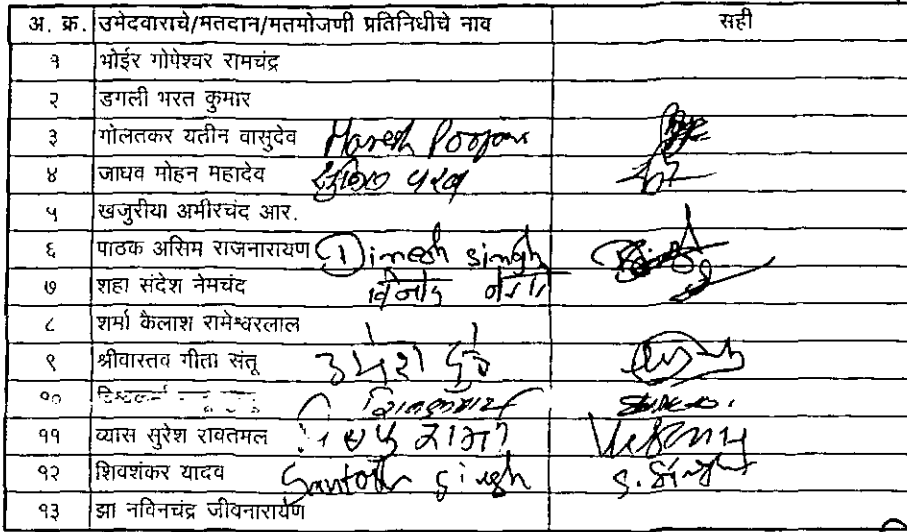 अ. क्र. उमेदवाराचे/मतदान/मतमोजणी प्रतिनिधीचे नाव सही
१ भोईर गोपेश्वर रामचंद्र
२ डगली भरत कुमार
३ गोलतकर यतीन वासुदेव Haresh
४ जाधव मोहन महादेव सुशिल परब
५ खजुरीया अमीरचंद आर.
६ पाठक असिम राजनारायण Dinesh singh
७ शहा संदेश नेमचंद विनोद
८ शर्मा कैलाश रामेश्वरलाल
९ श्रीवास्तव गीता संतू उमेश दुबे
१०
११ व्यास सुरेश रावतमल
१२ शिवशंकर यादव Santosh singh S. Singh
१३ झा नविनचंद्र जीवनारायण